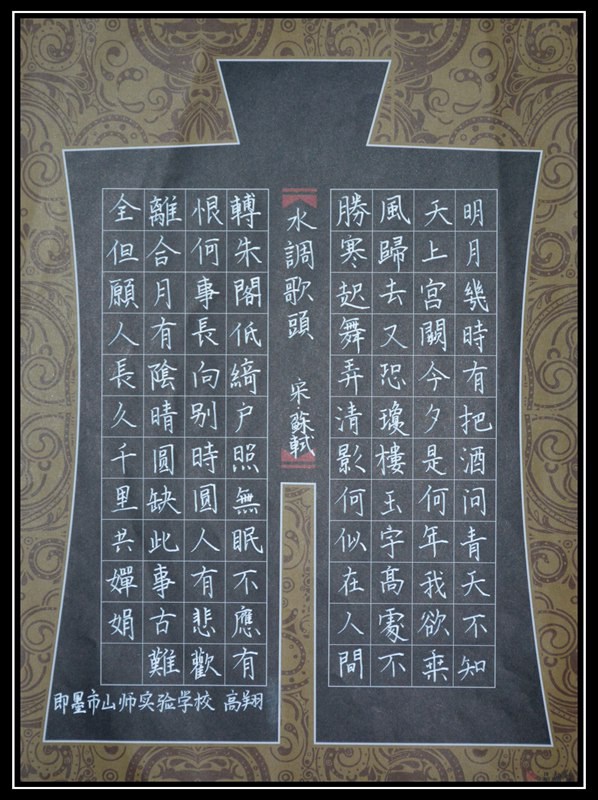 明月幾時有把酒问青天不知
天上宫闕今夕是何年我欲乘
風歸去又恐瓊樓玉宇髙處不
勝寒起舞弄清影何似在人間
水調歌頭 宋 蘇軾
轉朱閣低綺户照無眠不應有
恨何事長向别時圓人有悲歡
離合月有陰晴圓缺此事古難
全但願人長久千里共嬋娟
即墨市山师实验学校 高翔